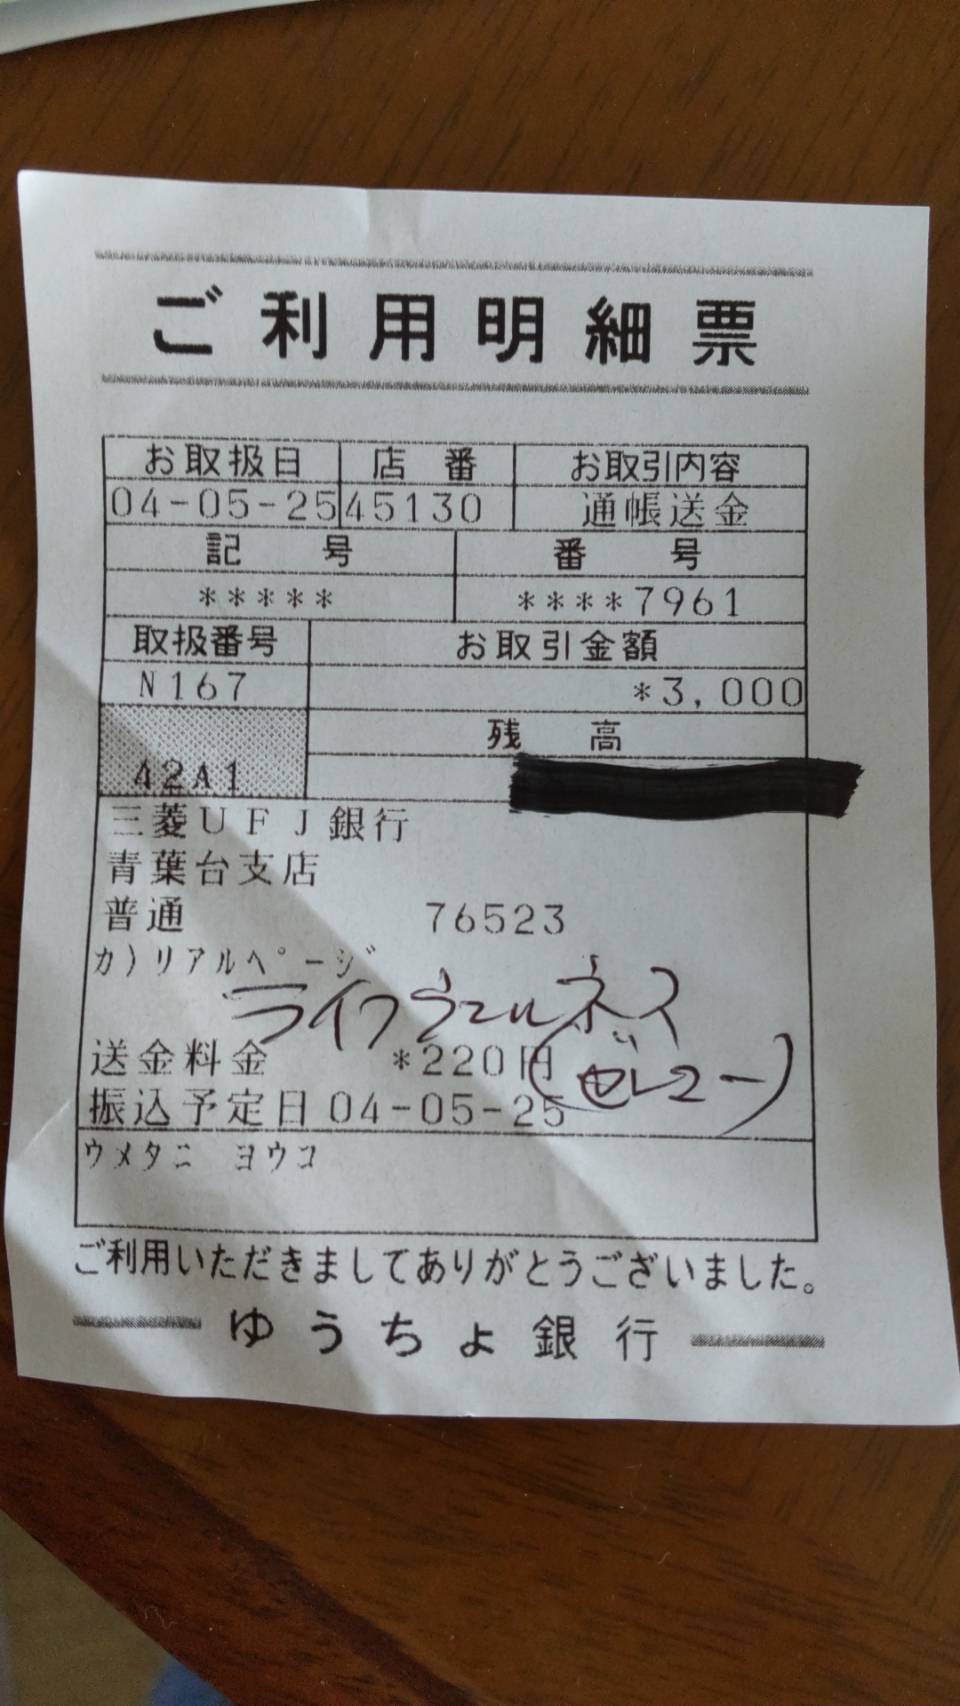 ご利用明細票
お取扱日 店番 お取引内容
04-05-25 45130 通帳送金
記号 番号
***** ****7961
取扱番号 お取引金額
N167 *3,000
残高
42A1
三菱UFJ銀行
青葉台支店
普通 76523
カ)リアルページ
ライフウェルネス
送金料金 *220円
(ゼレコー)
振込予定日 04-05-25
ウメタニ ヨウコ
ご利用いただきましてありがとうございました。
ゆうちょ銀行